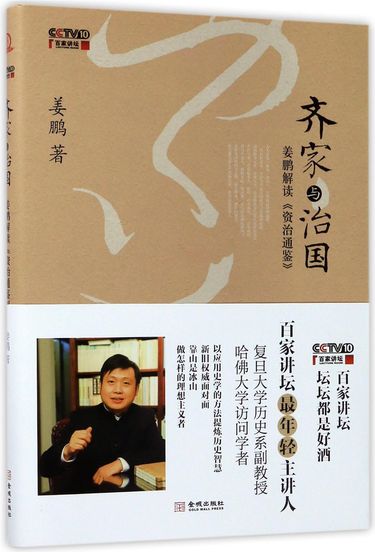 CCTV10
百家讲坛
齐家与治国
姜鹏解读《资治通鉴
姜鹏著
CCTV10
百家讲坛
姜鹏 著
齐家与治国
姜鹏解读《资治通鉴》
CCTV10
百家讲坛
百家讲坛
坛坛都是好酒
百家讲坛最年轻主讲人
复旦大学历史系副教授
哈佛大学访问学者
以应用史学的方法提炼历史智慧
新旧权威面对面
靠山是冰山
做怎样的理想主义者
金城出版社
GOLD WALL PRESS